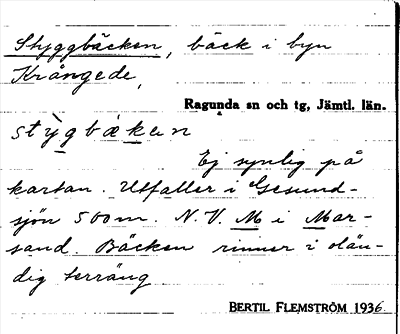 Styggbäcken, bäck i byn
Krångede,
Ragunda sn och tg, Jämtl. län.
stỳgbäken
Ej synlig på
kartan. Utfaller i Gesund-
sjön 500 m. N.V. M i Mar-
sand. Bäcken rinner i olän-
dig terräng
BERTIL FLEMSTRÖM 1936.